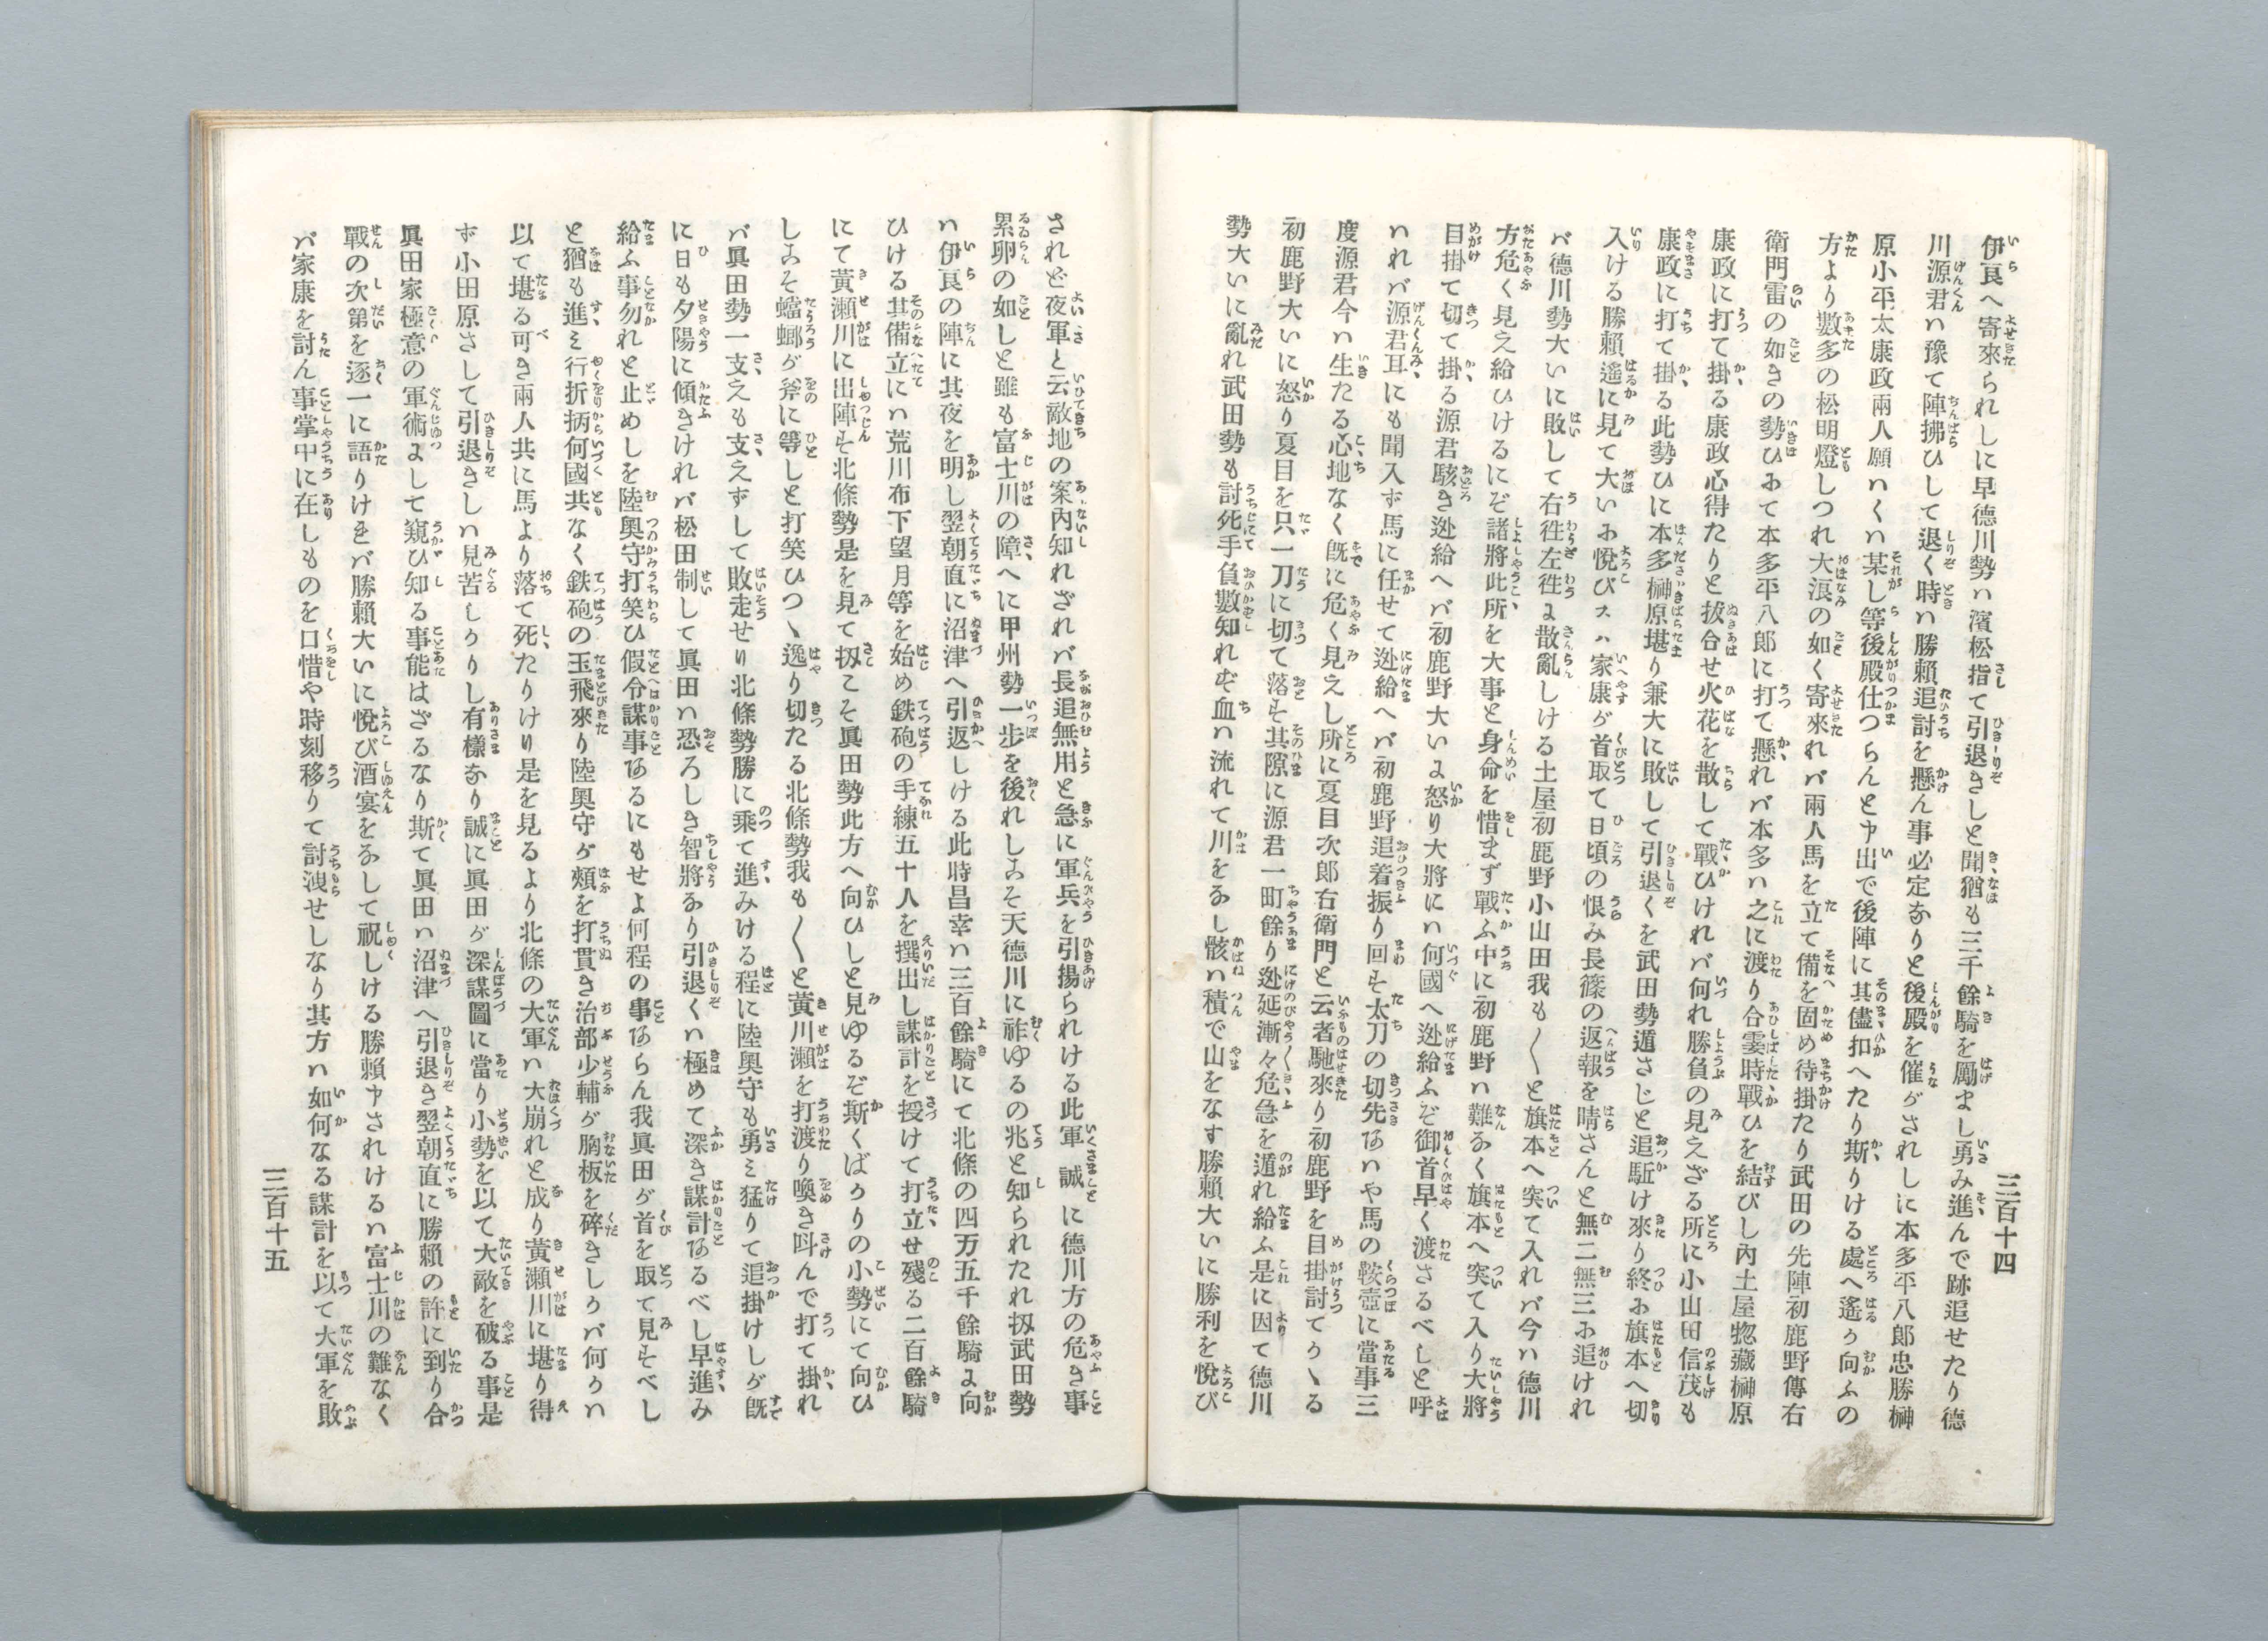 三百十四
伊良へ寄來られしに早德川勢ハ濱松指て引退きしと聞猶も三千餘騎を勵まし勇み進んで跡追せたり德
川源君ハ豫て陣拂ひして退く時ハ勝賴追討を懸ん事必定なりと後殿を催がされしに本多平八郎忠勝榊
原小平太康政兩人願ハくハ某し等後殿仕つらんと申出で後陣に其儘扣へたり斯りける處へ遙か向ふの
方より數多の松明燈しつれ大浪の如く寄來れバ兩人馬を立て備を固め待掛たり武田の先陣初鹿野傳右
衛門雷の如きの勢ひにて本多平八郎に打て懸れバ本多ハ之に渡り合霎時戰ひを結びし內土屋惣藏榊原
康政に打て掛る康政心得たりと拔合せ火花を散して戰ひけれバ何れ勝負の見えざる所に小山田信茂も
康政に打て掛る此勢ひに本多榊原堪り兼大に敗して引退くを武田勢遁さじと追駈け來り終に旗本へ切
入ける勝賴遙に見て大いに悅びスハ家康が首取て日頃の恨み長篠の返報を晴さんと無二無三に追けれ
バ德川勢大いに敗して右徃左徃に散亂しける土屋初鹿野小山田我も〱と旗本へ突て入れバ今ハ德川
方危く見え給ひけるにぞ諸將此所を大事と身命を惜まず戰ふ中に初鹿野ハ難なく旗本へ突て入り大將
目掛て切て掛る源君駭き迯給へバ初鹿野大いに怒り大將にハ何國へ迯給ふぞ御首早く渡さるべしと呼
ハれバ源君耳にも聞入ず馬に任せて迯給へバ初鹿野追着振り回す太刀の切先あハや馬の鞍壺に當事三
度源君今ハ生たる心地なく旣に危く見えし所に夏目次郎右衛門と云者馳來り初鹿野を目掛討てかゝる
初鹿野大いに怒り夏目を只一刀に切て落す其隙に源君一町餘り迯延漸々危急を遁れ給ふ是に因て德川
勢大いに亂れ武田勢も討死手負數知れず血ハ流れて川をなし骸ハ積で山をなす勝賴大いに勝利を悅び
されど夜軍と云敵地の案內知れざれバ長追無用と急に軍兵を引揚られける此軍誠に德川方の危き事
累卵の如しと雖も富士川の障へに甲州勢一步を後れしこそ天德川に祚ゆるの兆と知られたれ扨武田勢
ハ伊良の陣に其夜を明し翌朝直に沼津へ引返しける此時昌幸ハ三百餘騎にて北條の四万五千餘騎に向
ひける其備立にハ荒川布下望月等を始め鉄砲の手練五十人を撰出し謀計を授けて打立せ殘る二百餘騎
にて黃瀨川に出陣す北條勢是を見て扨こそ眞田勢此方へ向ひしと見ゆるぞ斯くばかりの小勢にて向ひ
しこそ蟷螂が斧に等しと打笑ひつゝ逸り切たる北條勢我も〱と黃川瀨を打渡り喚き叫んで打て掛れ
バ眞田勢一支えも支えずして敗走せり北條勢勝に乘て進みける程に陸奧守も勇ミ猛りて追掛けしが旣
に日も夕陽に傾きけれバ松田制して眞田ハ恐ろしき智將なり引退くハ極めて深き謀計あるべし早進み
給ふ事勿れと止めしを陸奧守打笑ひ假令謀事あるにもせよ何程の事あらん我眞田が首を取て見すべし
と猶も進ミ行折柄何國共なく鉄砲の玉飛來り陸奧守が頰を打貫き治部少輔が胸板を碎きしかバ何かハ
以て堪る可き兩人共に馬より落て死たりけり是を見るより北條の大軍ハ大崩れと成り黃瀨川に堪り得
ず小田原さして引退きしハ見苦しかりし有樣なり誠に眞田が深謀圖に當り小勢を以て大敵を破る事是
眞田家極意の軍術にして窺ひ知る事能はざるなり斯て眞田ハ沼津へ引退き翌朝直に勝賴の許に到り合
戰の次第を逐一に語りけれバ勝賴大いに悅び酒宴をなして祝しける勝賴申されけるハ富士川の難なく
バ家康を討ん事掌中に在しものを口惜や時刻移りて討洩せしなり其方ハ如何なる謀計を以て大軍を敗
三百十五